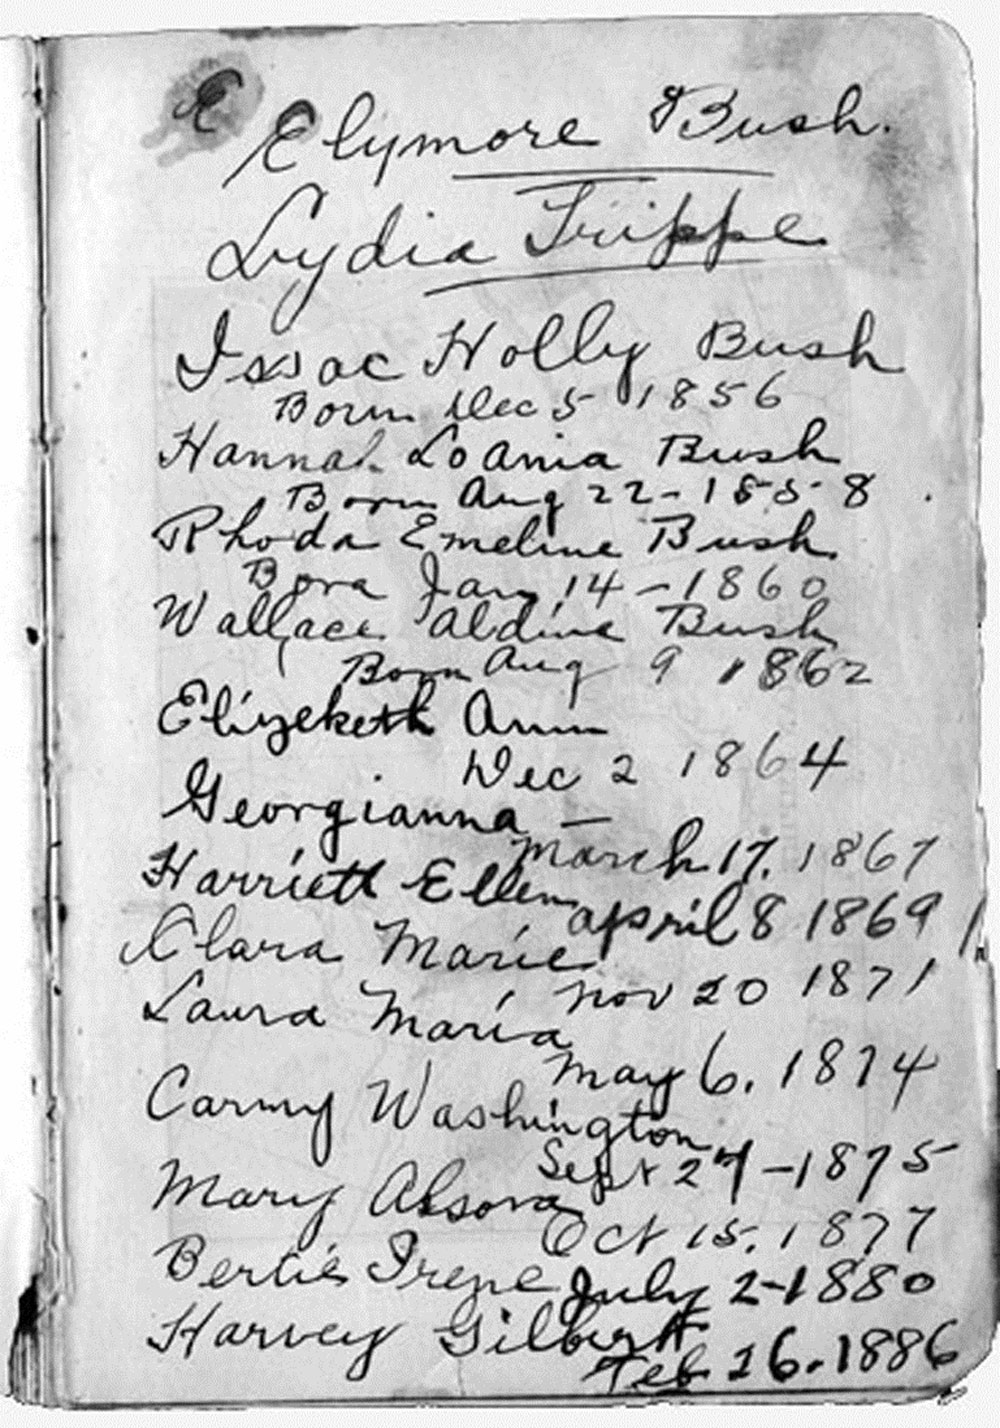 E
Elymore Bush.
Lydia Trippe
Issac Holly Bush
Born Dec 5 1856
Hannah LoAnia Bush
Born Aug 22-1858
Rhoda Emeline Bush
Born Jan 14-1860
Wallace Aldine Bush
Born Aug 9 1862
Elizebeth Ann
Dec 2 1864
Georgianna —
March 17, 1867
Harriett Ellen
April 8 1869
Clara Marie
Nov 20 1871
Laura Maria
May 6. 1874
Carmy Washington
Sept 27-1875
Mary
Oct 15. 1877
Bertie Irene July 2-1880
Harvey Gilbert
Feb 26.1886